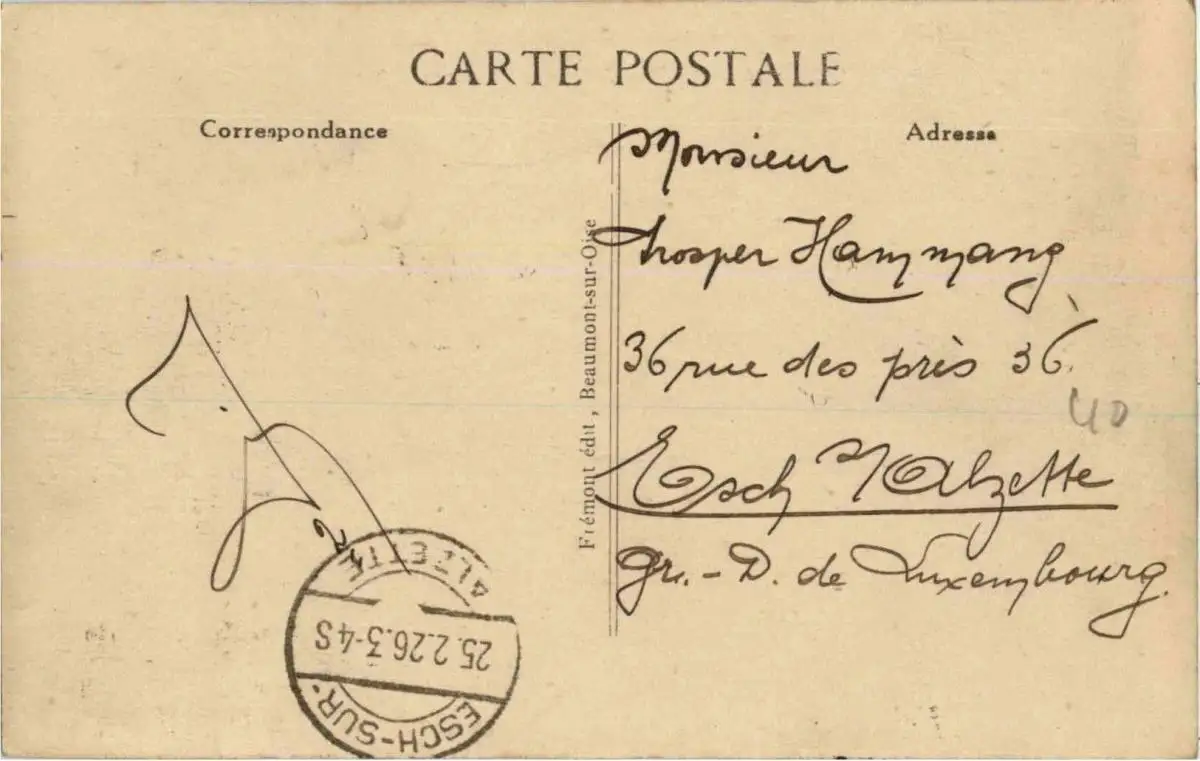 CARTE POSTALE
Correspondance
Adresse
Monsieur
Prosper Hammang
36 rue des près 36.
40
Esch s/Alzette
Gr. - D. de Luxembourg.
Frémont édit, Beaumont-sur-Oise
ESCH-SUR-
25.2.26.3-4S
ALZETTE